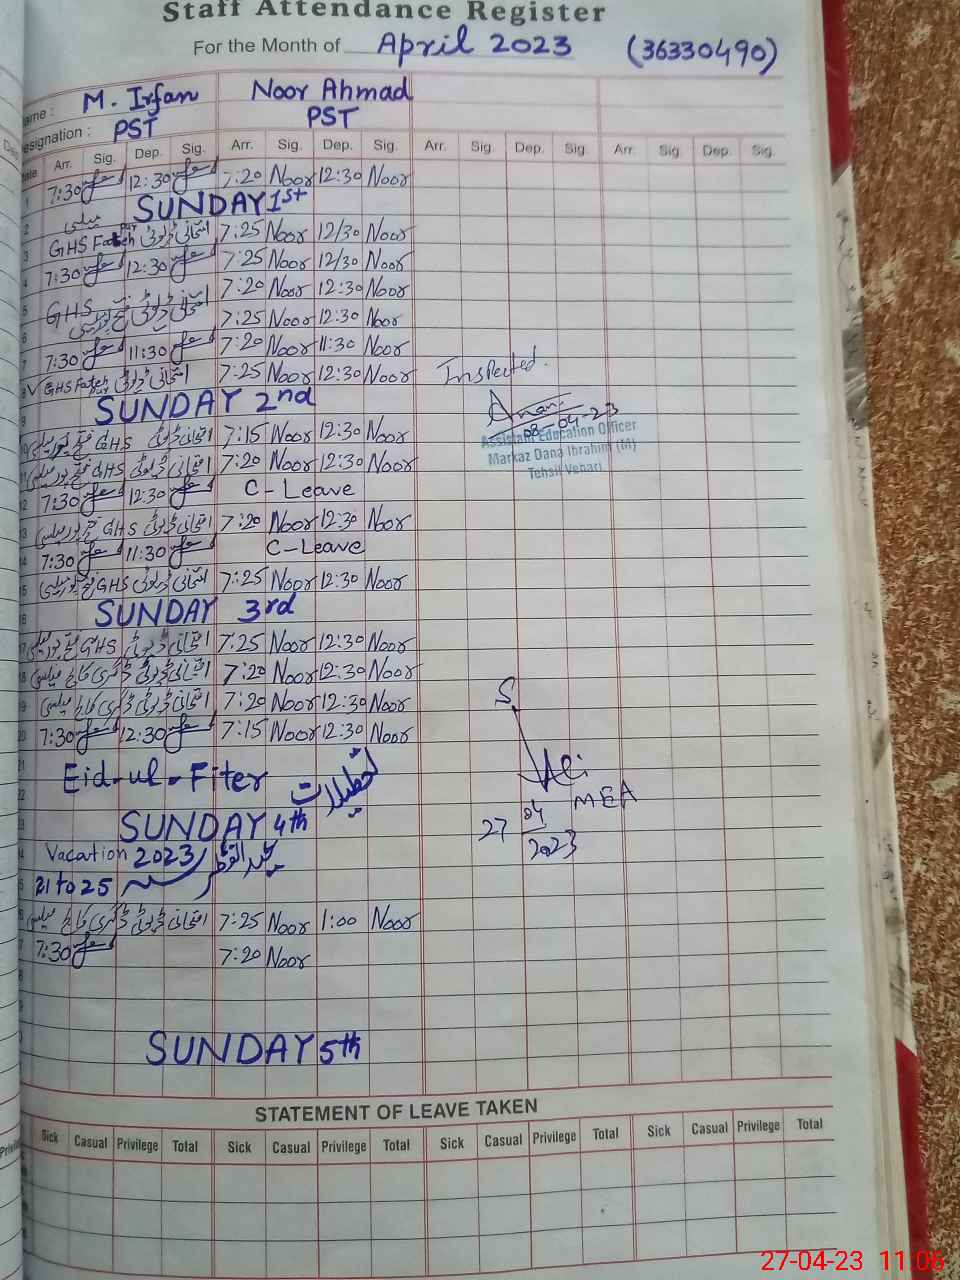 Staff Attendance Register
For the Month of April 2023 (36330490)
ame : M. Irfan Noor Ahmad
esignation : PST PST
Arr. Sig. Dep. Sig. Arr. Sig. Dep. Sig. Arr. Sig. Dep. Sig. Arr. Sig. Dep. Sig.
1 7:30 12:30 7:20 Noor 12:30 Noor
2 SUNDAY 1st
3 GHS Fateh امتحانی ڈیوٹی 7:25 Noor 12/30 Noor
4 7:30 12:30 7:25 Noor 12/30 Noor
5 GHS امتحانی ڈیوٹی 7:20 Noor 12:30 Noor
6 7:25 Noor 12:30 Noor
7 7:30 11:30 7:20 Noor 11:30 Noor
8 GHS Fateh pur امتحانی ڈیوٹی 7:25 Noor 12:30 Noor
Inspected.
9 SUNDAY 2nd
08-04-23
Assistant Education Officer
Markaz Dana Ibrahim (M)
Tehsil Vehari
10 GHS امتحانی ڈیوٹی 7:15 Noor 12:30 Noor
11 GHS امتحانی ڈیوٹی 7:20 Noor 12:30 Noor
12 7:30 12:30 C-Leave
13 GHS امتحانی ڈیوٹی 7:20 Noor 12:30 Noor
14 7:30 11:30 C-Leave
15 GHS امتحانی ڈیوٹی 7:25 Noor 12:30 Noor
16 SUNDAY 3rd
17 GHS امتحانی ڈیوٹی 7:25 Noor 12:30 Noor
18 امتحانی ڈیوٹی ڈگری کالج میلسی 7:20 Noor 12:30 Noor
19 امتحانی ڈیوٹی ڈگری کالج میلسی 7:20 Noor 12:30 Noor
20 7:30 12:30 7:15 Noor 12:30 Noor
21 Eid-ul-Fiter تعطیلات
22
23 SUNDAY 4th
MEA
27 04 2023
24 Vacation 2023 عید الفطر
25 21 to 25
26 امتحانی ڈیوٹی ڈگری کالج میلسی 7:25 Noor 1:00 Noor
27 7:30 7:20 Noor
SUNDAY 5th
STATEMENT OF LEAVE TAKEN
Sick Casual Privilege Total Sick Casual Privilege Total Sick Casual Privilege Total Sick Casual Privilege Total
27-04-23 11:06